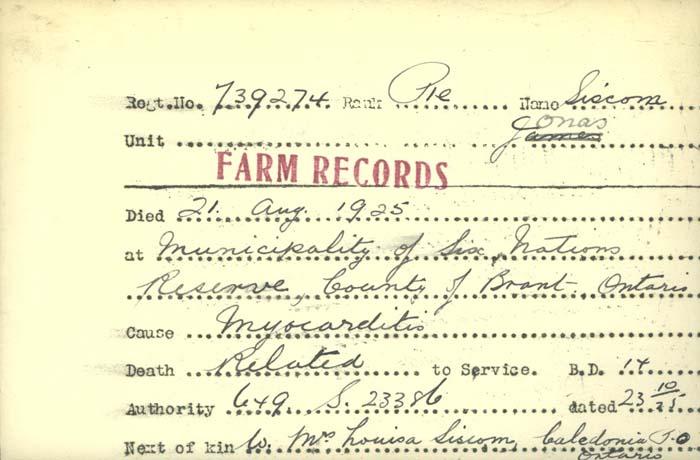 Regt.No. 739274 Rank Pte Name Siscom
Jonas
Unit James
FARM RECORDS
Died 21. Aug. 1925
at Municipality of Six Nations
Reserve, County of Brant, Ontario
Cause Myocarditis
Death Related to Service. B.D. 14
Authority 649 S. 23386 dated 23 10 25
Next of kin W. Mrs Louisa Siscom, Caledonia P.O
Ontario